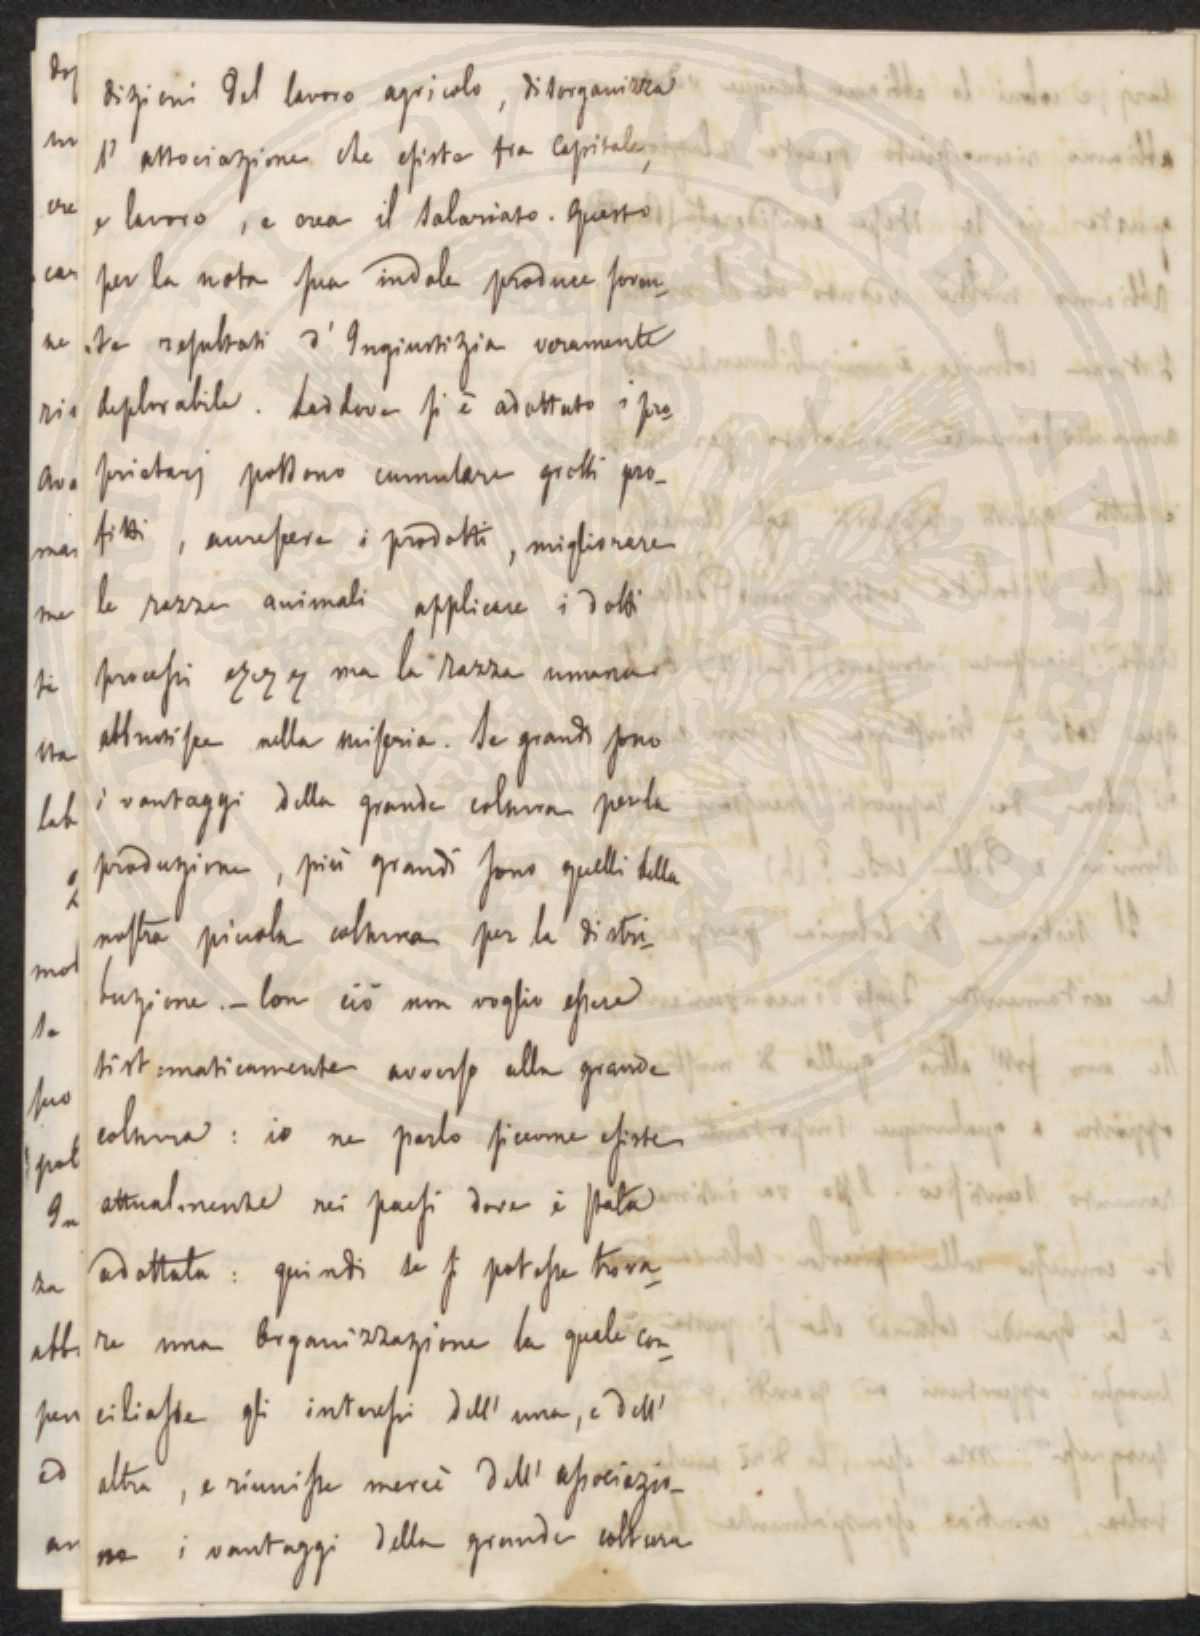 dizioni del lavoro agricolo, disorganizza
l' associazione che esiste fra Capitale,
e lavoro, e crea il Salariato. Questo
per la nota sua indole produce soven-
te resultati d' Ingiustizia veramente
deplorabile. Laddove si è adottato i pro-
prietarj possono cumulare grossi pro-
fitti, accrescere i prodotti, migliorare
le razze animali applicare i dotti
processi ma la razza umana
abbrutisce nella miseria. Se grandi sono
i vantaggi della grande coltura per la
produzione, più grandi sono quelli della
nostra piccola coltura per la distri-
buzione. – Con ciò non voglio essere
sistematicamente avverso alla grande
coltura: io ne parlo siccome esiste
attualmente nei paesi dove è stata
adottata: quindi se si potesse trova-
re una Organizzazione la quale con-
ciliasse gli interessi dell' una, e dell'
altra, e riunisse mercè dell' associazio-
ne i vantaggi della grande coltura